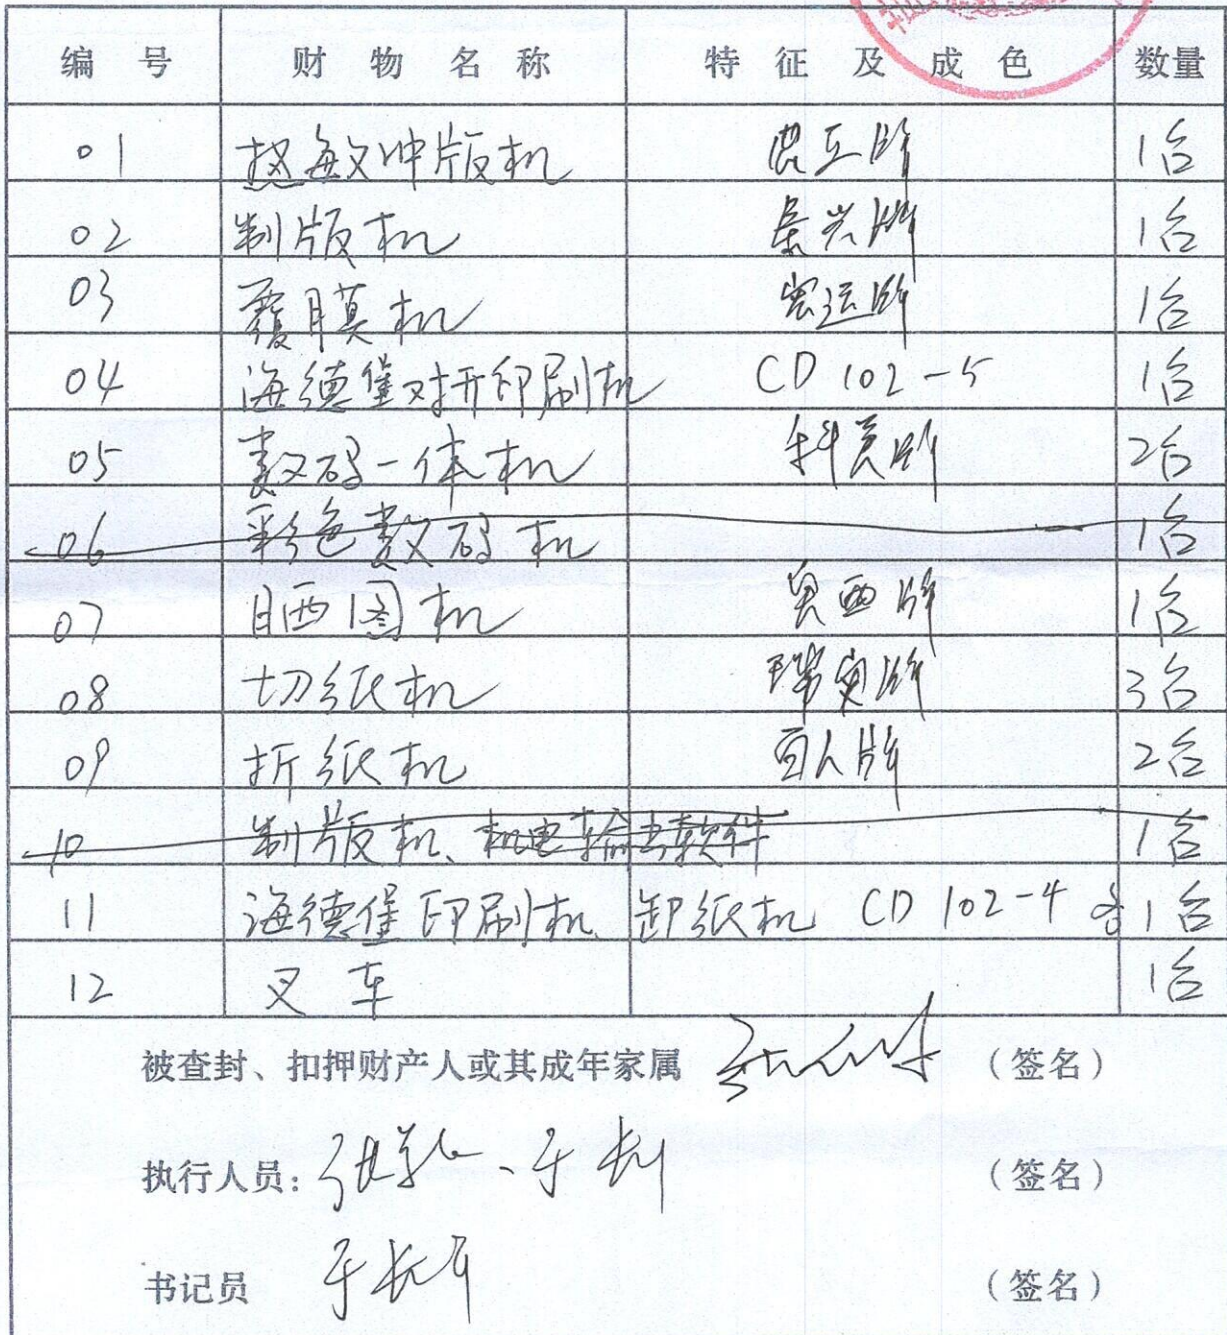 编号 财物名称 特征及成色 数量
01 热敏冲版机 牌 1台
02 制版机 牌 1台
03 覆膜机 宏远牌 1台
04 海德堡对开印刷机 CD 102-5 1台
05 数码一体机 科美牌 2台
06 彩色数码机 1台
07 晒图机 奥西牌 1台
08 切纸机 牌 3台
09 折纸机 牌 2台
10 制版机、机电输出软件 1台
11 海德堡印刷机、卸纸机 CD 102-4 各1台
12 叉车 1台
被查封、扣押财产人或其成年家属 (签名)
执行人员: (签名)
书记员 (签名)